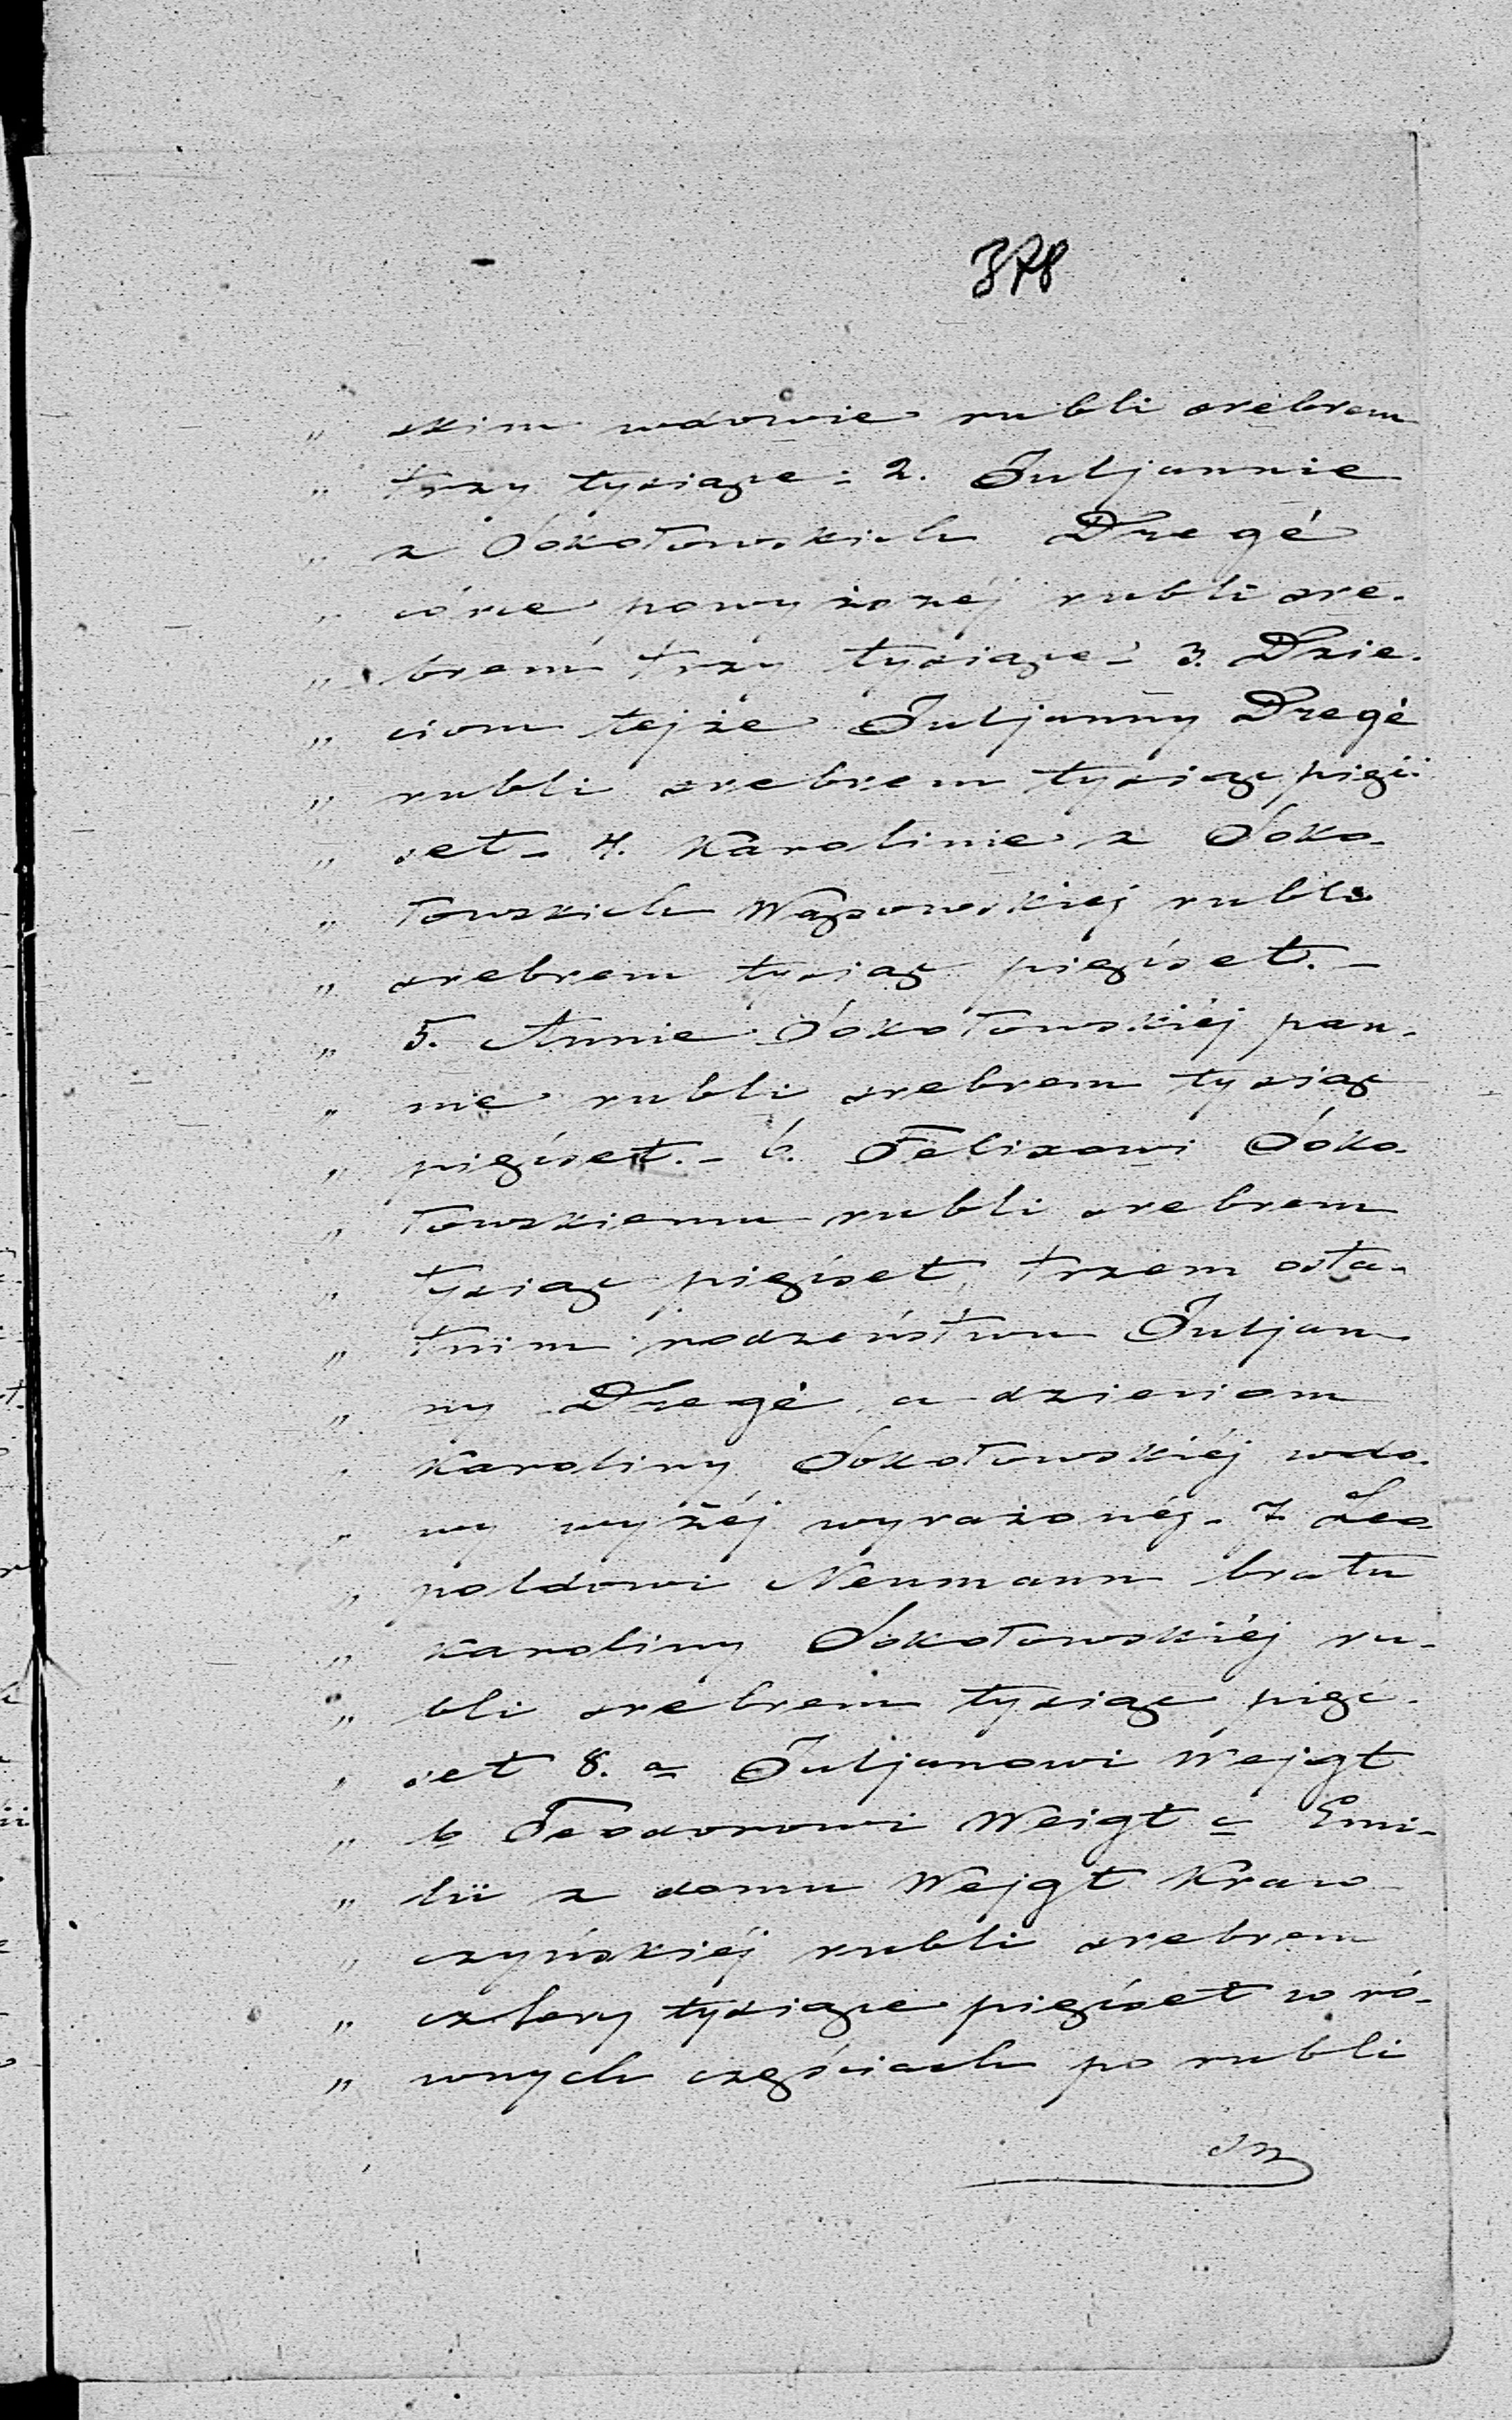 378
„ skim wdowie rubli srebrem
„ trzy tysiące: 2. Juljannie
„ z Sokołowskich Dregé
„ córce powyższéj rubli sre-
„ brem trzy tysiące – 3. Dzie-
„ ciom tejże Juljanny Dregé
„ rubli srebrem tysiąc pięć-
„ set – 4. Karolinie z Soko-
„ łowskich Wąsowskiej rubli
„ srebrem tysiąc pięćset. –
„ 5. Annie Sokołowskiéj pan-
„ nie rubli srebrem tysiąc
„ pięćset. – 6. Felixowi Soko-
„ łowskiemu rubli srebrem
„ tysiąc pięćset, trzem osta-
„ tnim rodzeństwu Juljan-
„ ny Dregé a dzieciom
„ Karoliny Sokołowskiéj wdo-
„ wy wyżéj wyrażonéj – 7. Leo-
„ poldowi Neumann bratu
„ Karoliny Sokołowskiéj ru-
„ bli srebrem tysiąc pięć-
„ set 8. a Juljanowi Wejgt
„ b Teodorowi Weigt c Emi-
„ lii z domu Wejgt Kraw-
„ czyńskiéj rubli srebrem
„ cztery tysiące pięćset w ró-
„ wnych częściach po rubli